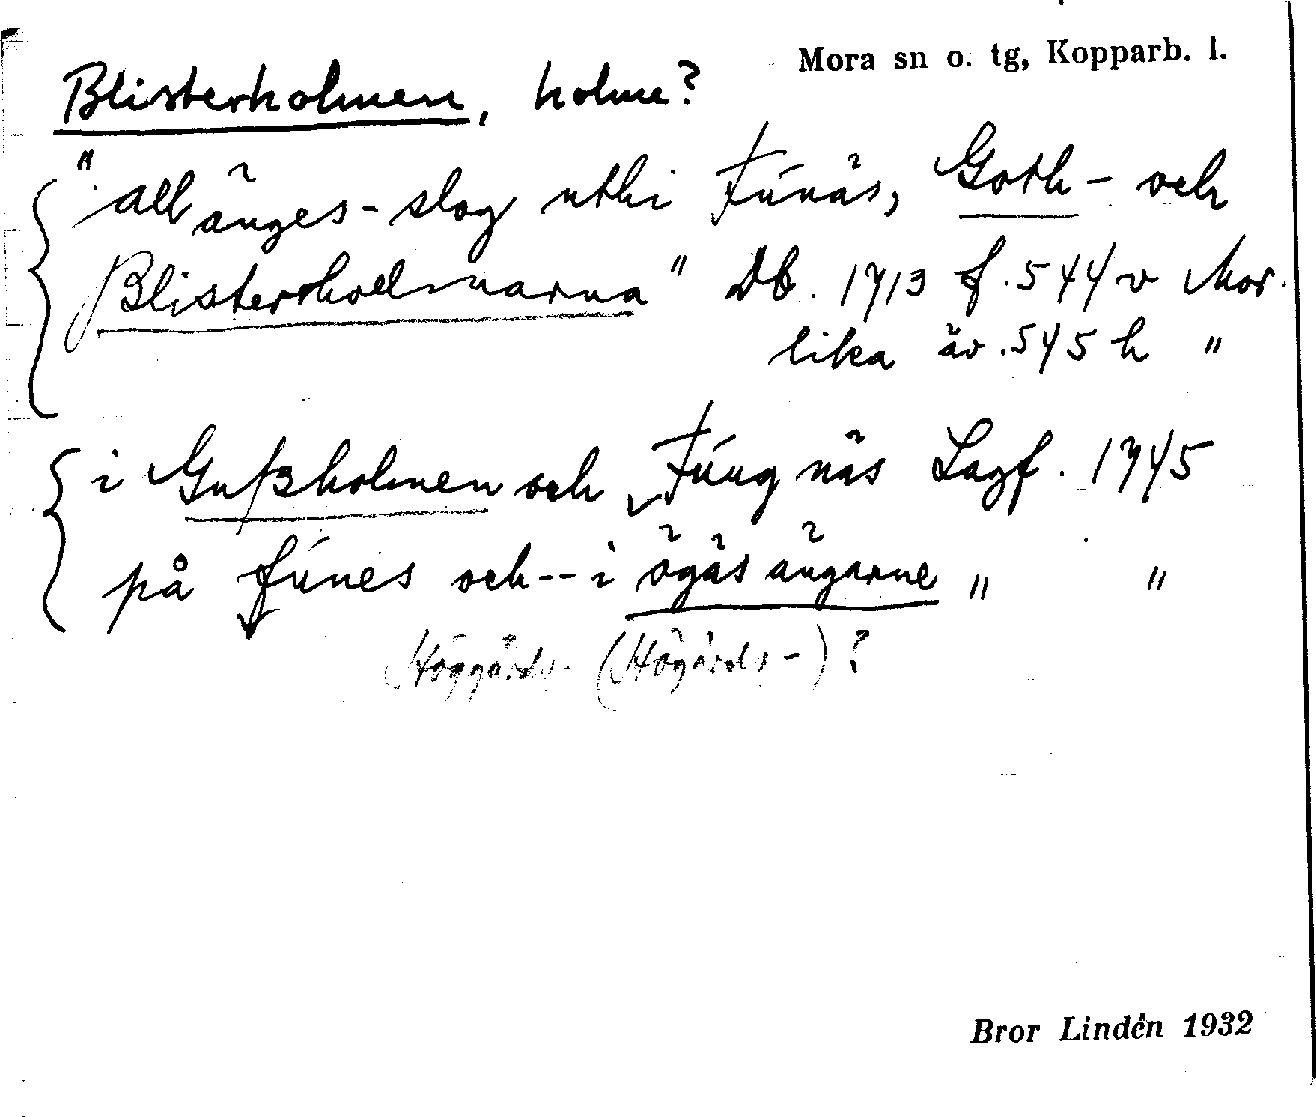 Mora sn o. tg, Kopparb. l.
Blisterholmen, holme?
"all änges-slog uthi Fúnäs, Goth- och
Blistershollmarna" Db. 1713 f. 544 v Mor.
lika äv. 545 h "
{ i Gußholmen och Fúngnäs Lagf. 1745
på fúnes och -- i ögäsängarne " "
Höggårds- (Högårds-)?
Bror Lindén 1932